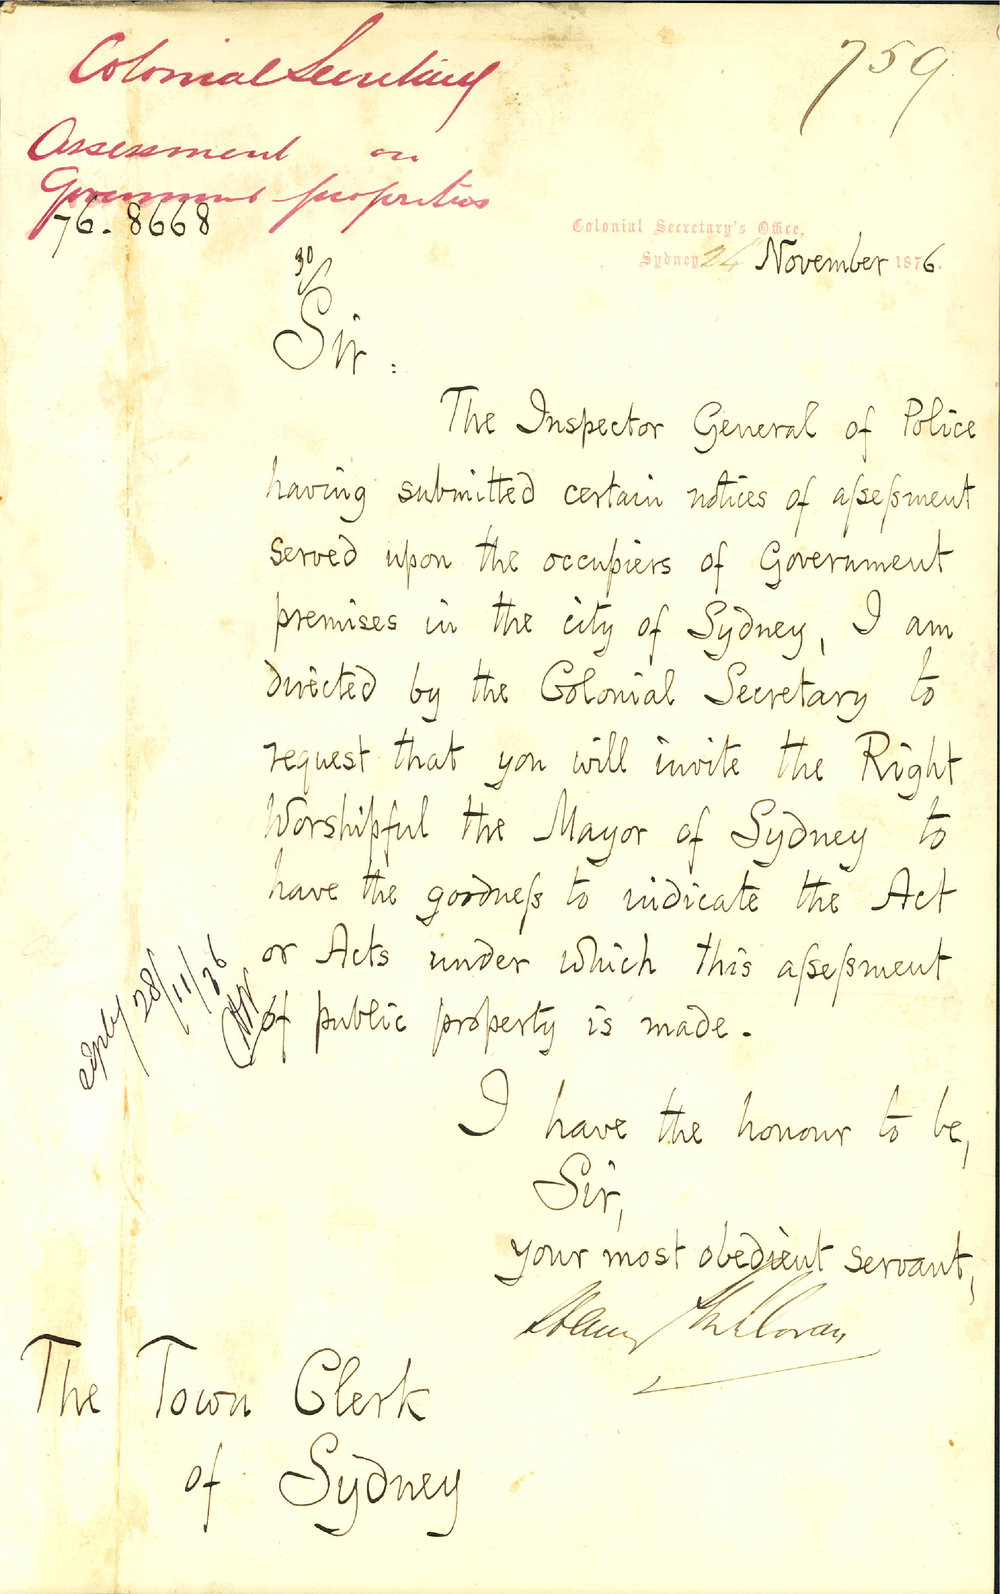 Colonial Secretary
759
Assessment on
Government properties
76. 8668
Colonial Secretary's Office,
Sydney 24 November 1876.
30
Sir:
The Inspector General of Police
having submitted certain notices of aſseſsment
served upon the occupiers of Government
premises in the city of Sydney, I am
directed by the Colonial Secretary to
request that you will invite the Right
Worshipful the Mayor of Sydney to
have the goodneſs to indicate the Act
or Acts under which this aſseſsment
of public property is made.
28/11/76
I have the honour to be,
Sir,
your most obedient servant,
Henry Halloran
The Town Clerk
of Sydney